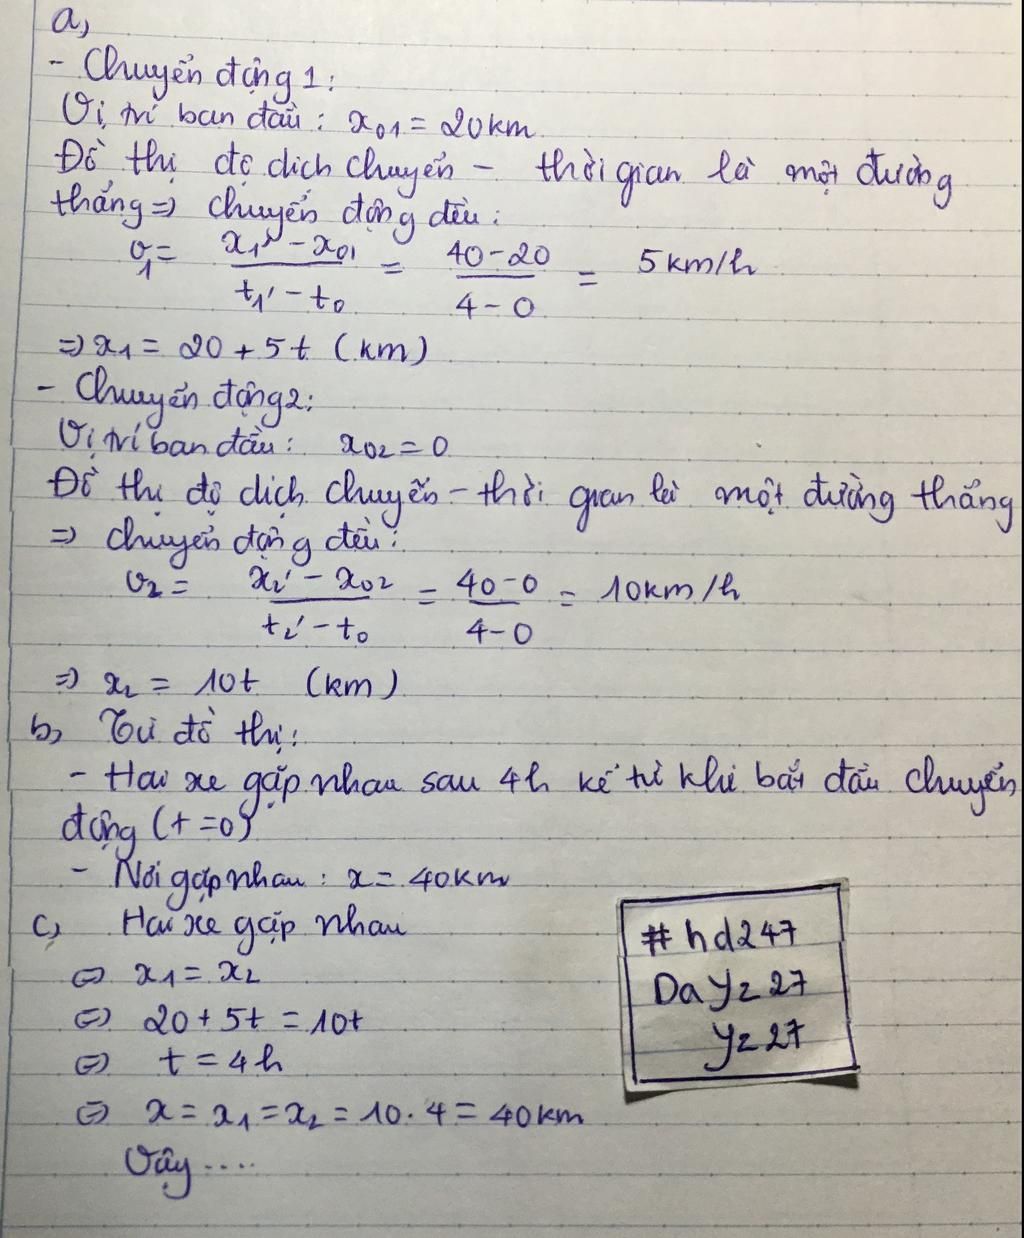 a,
- Chuyển động 1:
Vị trí ban đầu: x₀₁ = 20km
Đồ thị độ dịch chuyển - thời gian là một đường
thẳng ⇒ chuyển động đều:
v₁ = (x₁' - x₀₁)/(t₁' - t₀) = (40-20)/(4-0) = 5km/h
⇒ x₁ = 20 + 5t (km)
- Chuyển động 2:
Vị trí ban đầu: x₀₂ = 0
Đồ thị độ dịch chuyển - thời gian là một đường thẳng
⇒ chuyển động đều:
v₂ = (x₂' - x₀₂)/(t₂' - t₀) = (40-0)/(4-0) = 10km/h
⇒ x₂ = 10t (km)
b, Từ đồ thị:
- Hai xe gặp nhau sau 4h kể từ khi bắt đầu chuyển
động (t = 0)
- Nơi gặp nhau: x = 40km
c, Hai xe gặp nhau
⇔ x₁ = x₂
⇔ 20 + 5t = 10t
⇔ t = 4h
⇔ x = x₁ = x₂ = 10.4 = 40km
Vậy ....
#hd247
Dayz27
yz27